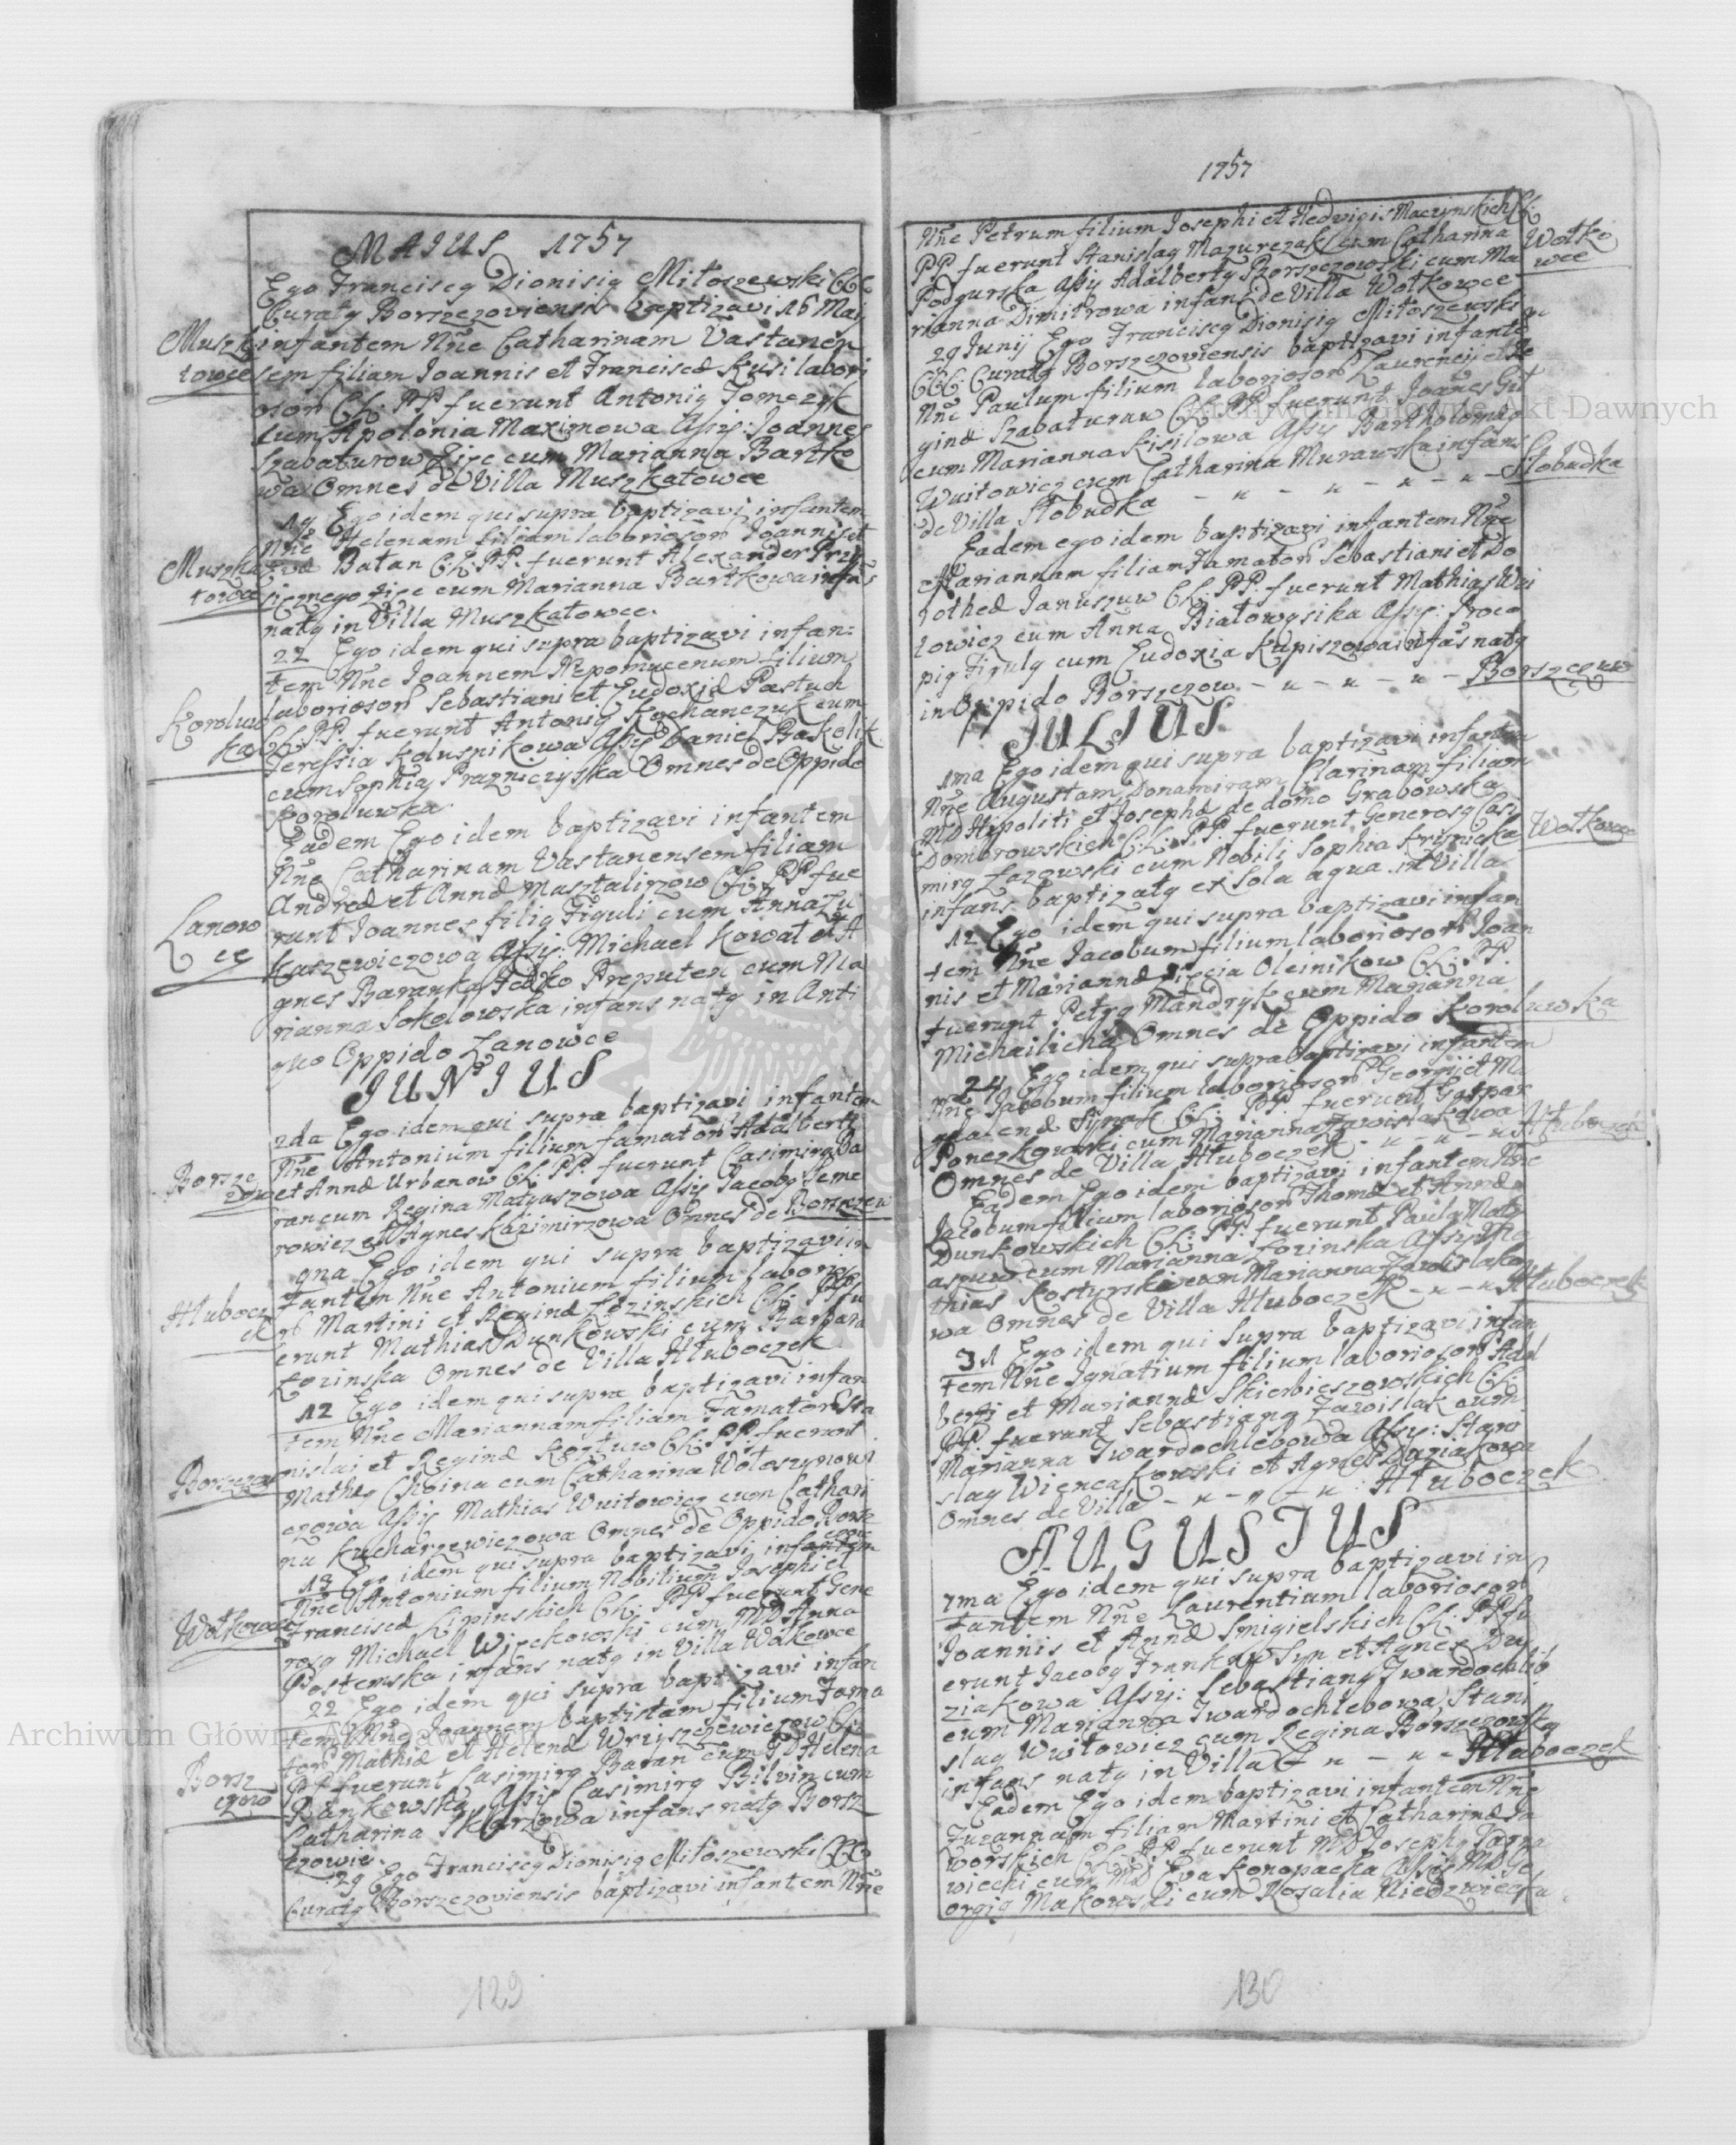 MAIUS 1757
Ego Franciscq Dionisiq Miłoszewski CCC
Curatq Borszczoviensis baptizavi 16 Maij
Muszka infantem Nne Catharinam Vastanen
towce sem filiam Joannis et Franciscæ Kusi labori
osor CL: PP fuerunt Antoniq Tomczyk
cum Apolonia Maximowa Assij: Joannes
Szabaturow Zięc cum Marianna Bartko
wa Omnes de Villa Muszkatowce
19 Ego idem qui supra baptizavi infantem
Nne Helenam filiam laboriosor Joannis et
Muszka Evæ Bałan C:L: PP. fuerunt Alexander Przy
towce sięznego zięc cum Marianna Bartkowa infans
natq in Villa Muszkatowce.
22 Ego idem qui supra baptizavi infan=
tem Nne Joannem Nepomucenum filium
laboriosor Sebastiani et Eudoxiæ Pastuch
Koroluw CL: PP. fuerunt Antoniq Kochanczuk cum
ka Teressia Kolusnikowa Assij Daniel Bakolik
cum Sophia Praznicziyska Omnes de Oppido
Koroluwka
Eadem Ego idem baptizavi infantem
Nne Catharinam Vastanensem filiam
Andreæ et Annæ Masztalirzow CL: PP fue
Lanow runt Joannes filiq Figuli cum Anna Łu
ce kaszewiczowa Assij: Michael Kowal et A
gnes Baranka Fedko Preputen cum Ma
rianna Sokołowska infans natq in Anti
quo Oppido Lanowce
JUNIUS
2da Ego idem qui supra baptizavi infantem
Nne Antonium filium famator Adalberti
Borszc et Annæ Urbanow CL PP fuerunt Casimirq Ba
zow ran cum Regina Matyaszowa Assij Jacobq Seme
rowicz et Agnes Kazimirzowa Omnes de Borszczow
9na Ego idem qui supra baptizavi in
fantem Nne Antonium filium laborio
Hłubocz sor Martini et Reginæ Łozinskich CL: PP fu
ek erunt Mathias Dunkowski cum Barbara
Łozinska Omnes de Villa Hłuboczek
12 Ego idem qui supra baptizavi infan
tem Nne Mariannam filiam Famator Sta
nislai et Reginæ CL: PP: fuerunt
Borszczow Matheq Choina cum Catharina Wołoszynowi
czowa Assij Mathias Wuitowicz cum Cathari
na Kucharzewiczowa Omnes de Oppido Borsz
czow
13 Ego idem qui supra baptizavi infantem
Nne Antonium filium Nobilium Josephi et
Wołkowce Franciscæ Lipinskich CL: PP fuerunt Gene
rosq Michael Więckowski cum MD Anna
Postemska infans natq in Villa Wołkowce
22 Ego idem qui supra baptizavi infan
tem Nne Joannem baptistam filium Fama
tor Mathiæ et Helenæ Wryszczewiczow CL:
Borsz PP fuerunt Casimirq Baran cum PD Helena
czow Bankowska Assij Casimirq Bilvin cum
Catharina Skbarzowa infans natq Borsz
czowie.
29 Ego Franciscq Dionisiq Miłoszewski CCC
Curatq Borszczoviensis baptizavi infantem Nne
129
1757
Nne Petrum filium Josephi et Hedvigis Maczynskich CL:
PP. fuerunt Stanislaq Mazurczak cum Catharina Wołko
Podgurska Assij Adalbertq Borszczowski cum Ma wce
rianna Dimitrowa infans de Villa Wołkowce
29 Junij Ego Franciscq Dionisiq Miłoszewski
CCC: Curatq Borszczoviensis baptizavi infante
Nne Paulum filium laboriosor Laurencij et Re
ginæ Szabaturaw CL PP fuerunt Joannes Gut
cum Marianna Kisilowa Assij Bartholomeq
Wuitowicz cum Catharina Murawska infans
de Villa Słobudka - " - " - " - " - Słobudka
Eadem ego idem baptizavi infantem Nne
Mariannam filiam Famator Sebastiani et Do
rotheæ Januszuw CL: PP. fuerunt Mathias Wui
towicz cum Anna Białowąsika Assij: Proco
piq Figulq cum Eudoxia Kupiszowa infans natq
in Oppido Borszczow - " - " - " - Borszczow
JULIUS
1ma Ego idem qui supra baptizavi infantem
Nne Augustam Donamiram Clarinam filiam
MD Hipoliti et Josephæ de domo Grabowska
Dombrowskich CL: PP. fuerunt Generosq Casi Wołkowce
mirq Łazowski cum Nobili Sophia Krisnicka
infans baptizatq ex sola aqua in Villa
12 Ego idem qui supra baptizavi infan
tem Nne Jacobum filium laboriosor Joan
nis et Mariannæ Zięcia Oleinikow CL: PP.
fuerunt Petrq Mandryk cum Marianna
Michailicha Omnes de Oppido Koroluwka
24 Ego idem qui supra baptizavi infantem
Nne Jacobum filium laboriosor Georgij et Ma
Synak CL: PP. fuerunt Gaspar
Ponczkowski cum Marianna Zawislakowa
Omnes de Villa Hłuboczek - " - " - " Hłuboczek
Eadem Ego idem baptizavi infantem Nne
Jacobum filium laboriosor Thomæ et Annæ
Dunkowskich CL: PP. fuerunt Paulq Maty
aszuw cum Marianna Łozinska Assij Ma
thias Kostyrski cum Marianna Zawislako
wa Omnes de Villa Hłuboczek - " - " Hłuboczek
31 Ego idem qui supra baptizavi infan
tem Nne Ignatium filium laboriosor Adal
berti et Mariannæ Skierbieszowskich CL:
PP. fuerunt Sebastianq Zawislak cum
Marianna Twardochlebowa Assij: Stani
slaq Wiencakowski et Agnes Daziakowa
Omnes de Villa - " - " - " Hłuboczek
AUGUSTUS
7ma Ego idem qui supra baptizavi in
fantem Nne Laurentium laboriosor
Joannis et Annæ Smigielskich CL: PP fu
erunt Jacobq Frankuw Syn et Agnes Du
ziakowa Assij: Sebastianq Twardochlib
cum Marianna Twardochlebowa Stani
slaq Wuitowicz cum Regina Borszczowska
infans natq in Villa - " - " - Hłuboczek
Eadem Ego idem baptizavi infantem Nne
Zuzannam filiam Martini et Catharinæ Ja
worskich CL: PP fuerunt MD Josephq Tarna
wiecki cum MD Eva Konopacka Assij MD Ge
orgiq Makowski cum Rosalia Niedzwiecka
130
Archiwum Główne Akt Dawnych
Archiwum Główne Akt Dawnych